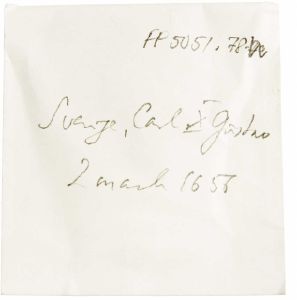 FP 5051.78
Sverige, Carl X Gustav
2 mark 1656